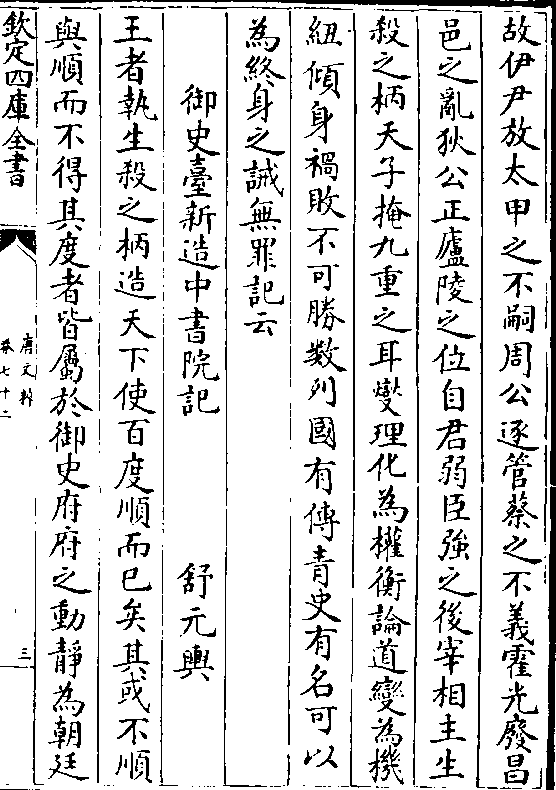 故伊尹放太甲之不嗣周公逐管蔡之不義霍光廢昌
邑之亂狄公正廬陵之位自君弱臣強之後宰相主生
殺之柄天子掩九重之耳燮理化為權衡論道變為機
紐傾身禍敗不可勝數列國有傳青史有名可以
為終身之誡無罪記云
御史臺新造中書院記 舒元輿
王者執生殺之柄造天下使百度順而已矣其或不順
與順而不得其度者皆屬於御史府府之動靜為朝廷
欽定四庫全書
唐文粹
卷七十二
三